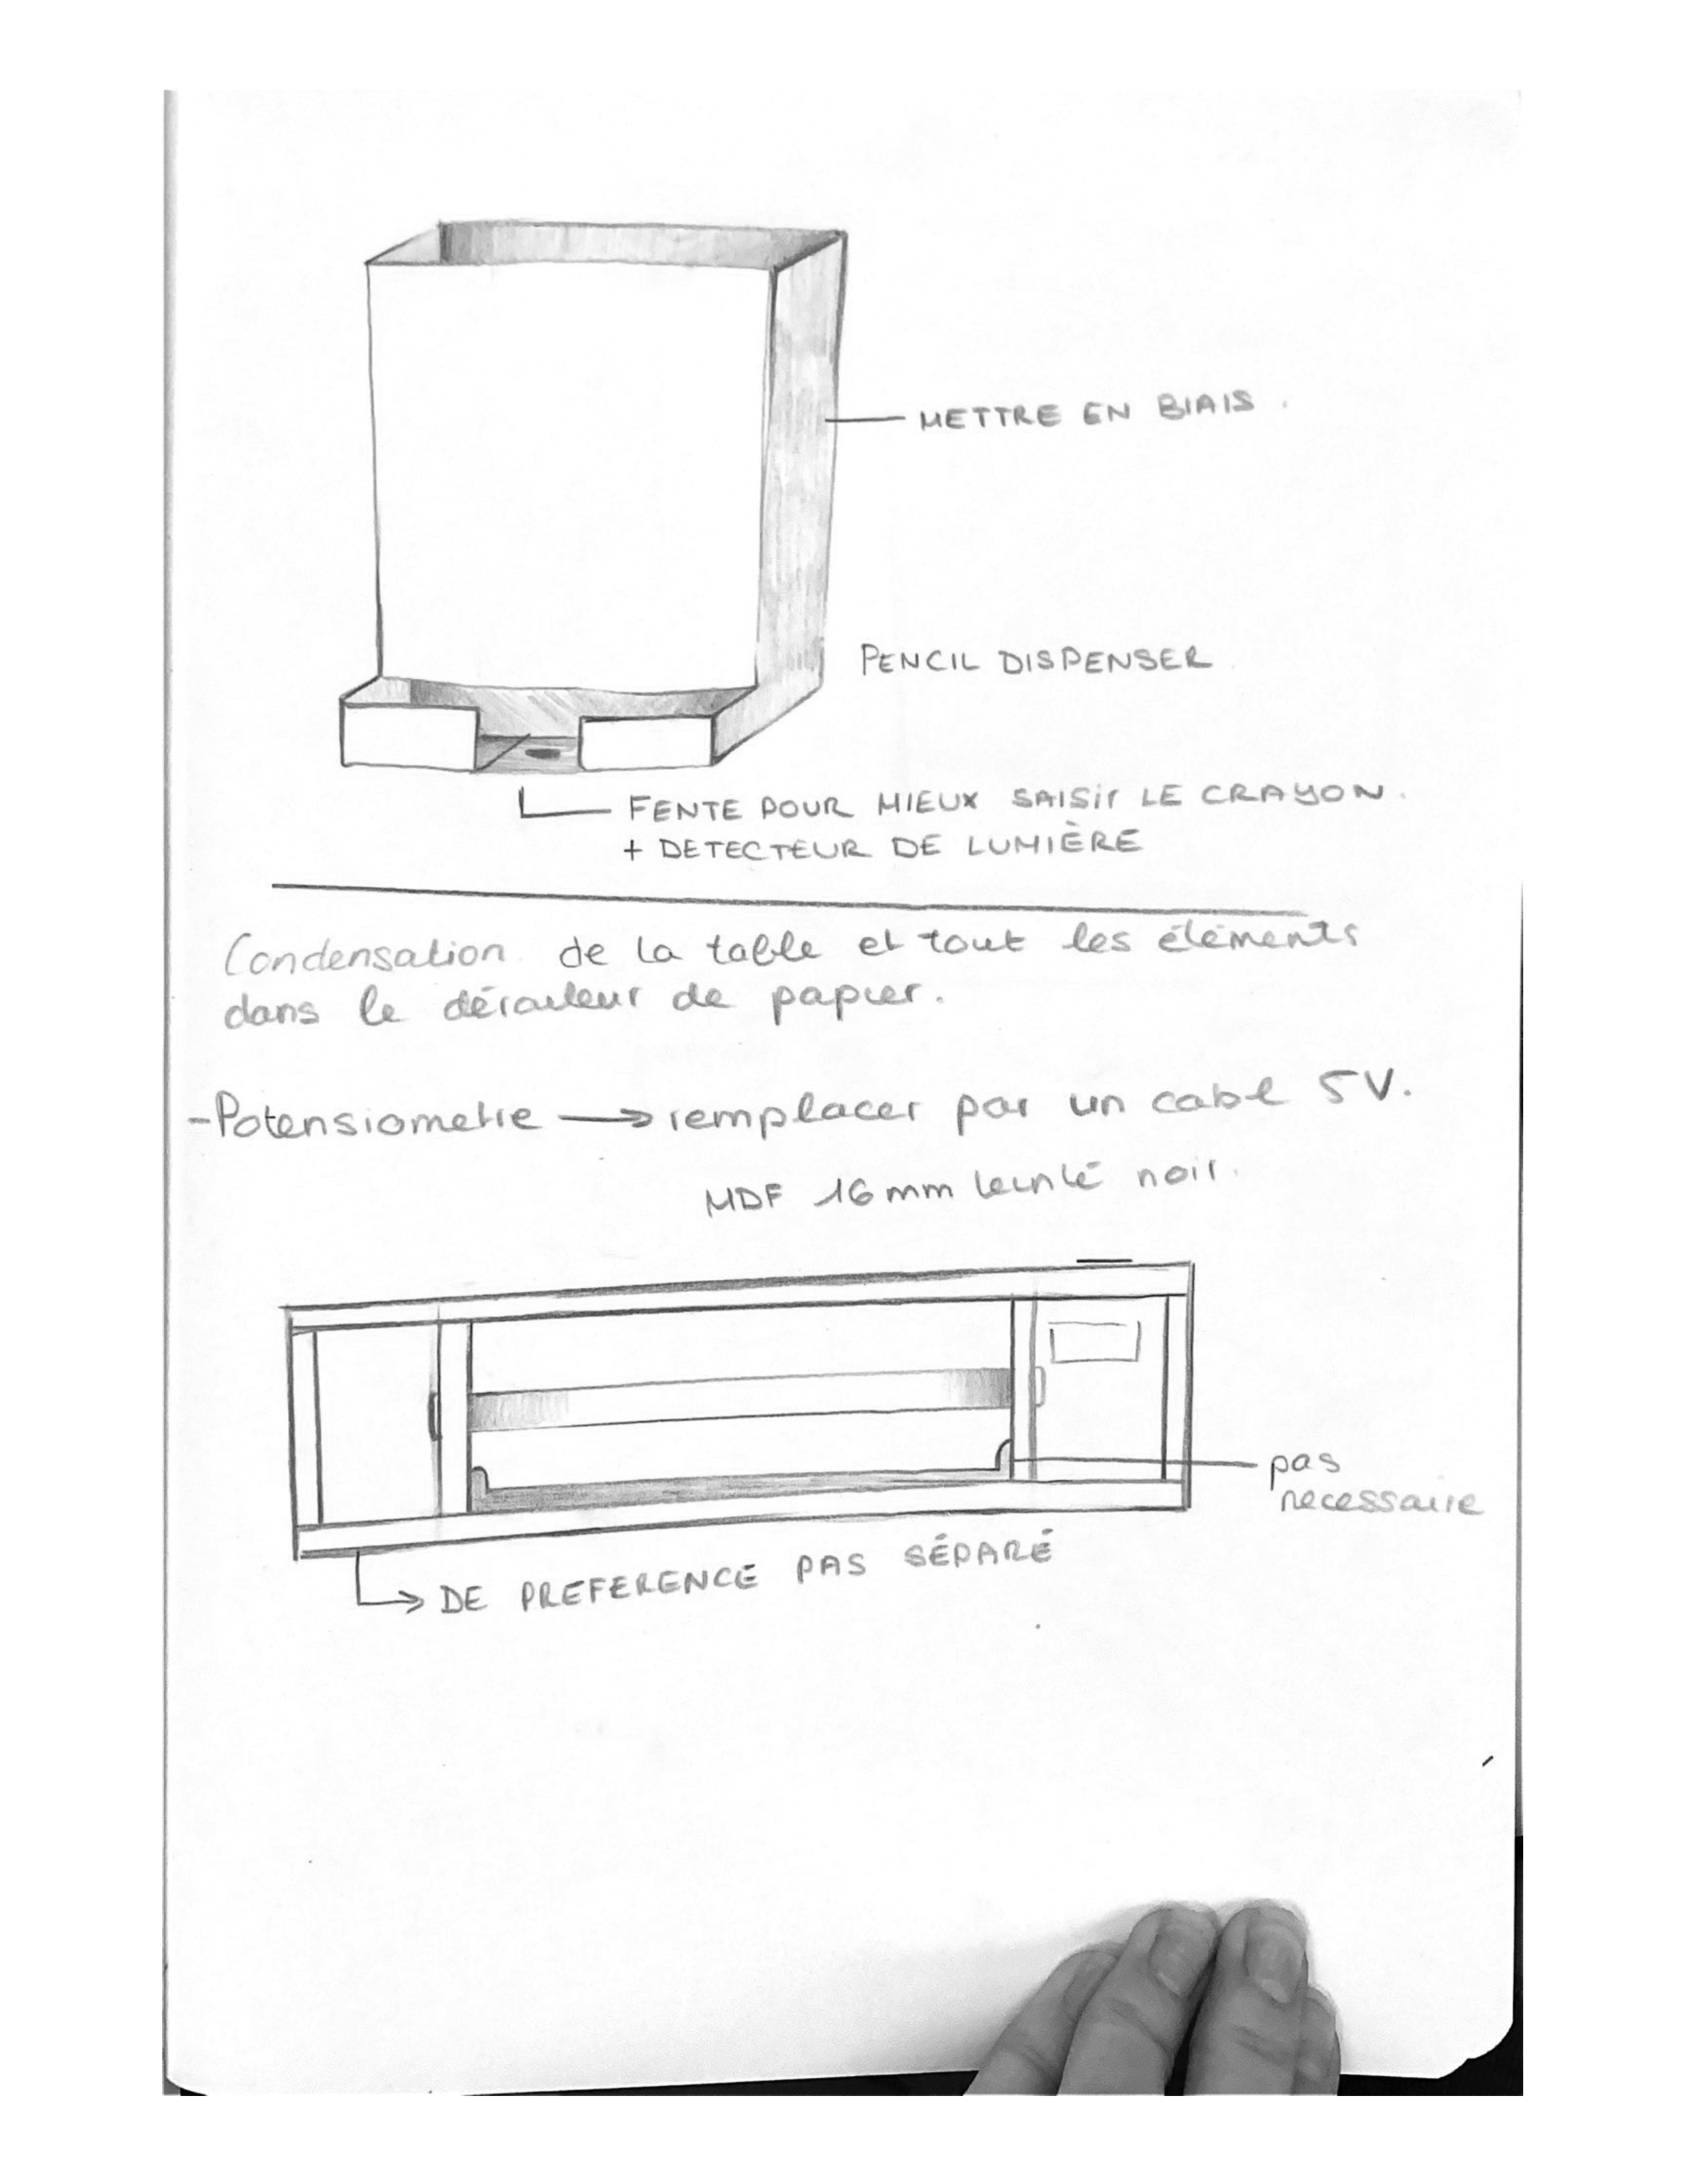 METTRE EN BIAIS.
PENCIL DISPENSER
FENTE POUR MIEUX SAISIR LE CRAYON.
+ DETECTEUR DE LUMIÈRE
Condensation de la table et tout les éléments
dans le dérouleur de papier.
-Potensiometre → remplacer par un cable 5V.
MDF 16mm teinté noir.
pas
necessaire
→ DE PREFERENCE PAS SÉPARÉ